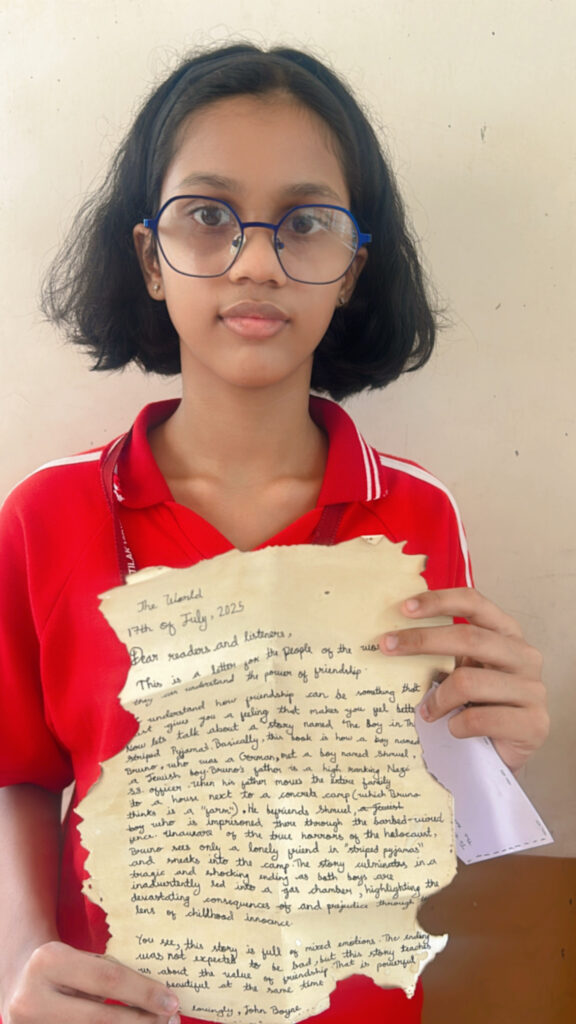 TILAK
The World
17th of July, 2025
Dear readers and listeners,
This is a letter for the people of the
they understand the power of friendship.
understand how friendship can be something that
gives you a feeling that makes you feel
Now lets talk about a story named The Boy in
Striped Pyjamas. Basically, this book is how a boy named
Bruno, who was a German, met a boy named Shmuel,
a Jewish boy. Bruno's father is a high ranking Nazi
SS. officer, when his father moves the entire family
to a house next to a concrete camp (which Bruno
thinks is a "farm"), He befriends Shmuel, a Jewish
boy who is imprisoned there through the barbed-wired
fence. Unaware of the true horrors of the holocaust,
Bruno sees only a lonely friend in "striped pyjamas"
and sneaks into the camp. The story culminates in a
tragic and shocking ending as both boys are
inadvertently led into a gas chamber, highlighting the
devastating consequences of and prejudice through
lens of childhood innocence.
You see, this story is full of mixed emotions. The ending
was not expected to be bad, but this story teaches
us about the value of friendship. That is powerful
beautiful at the same time
lovingly, John Boyne